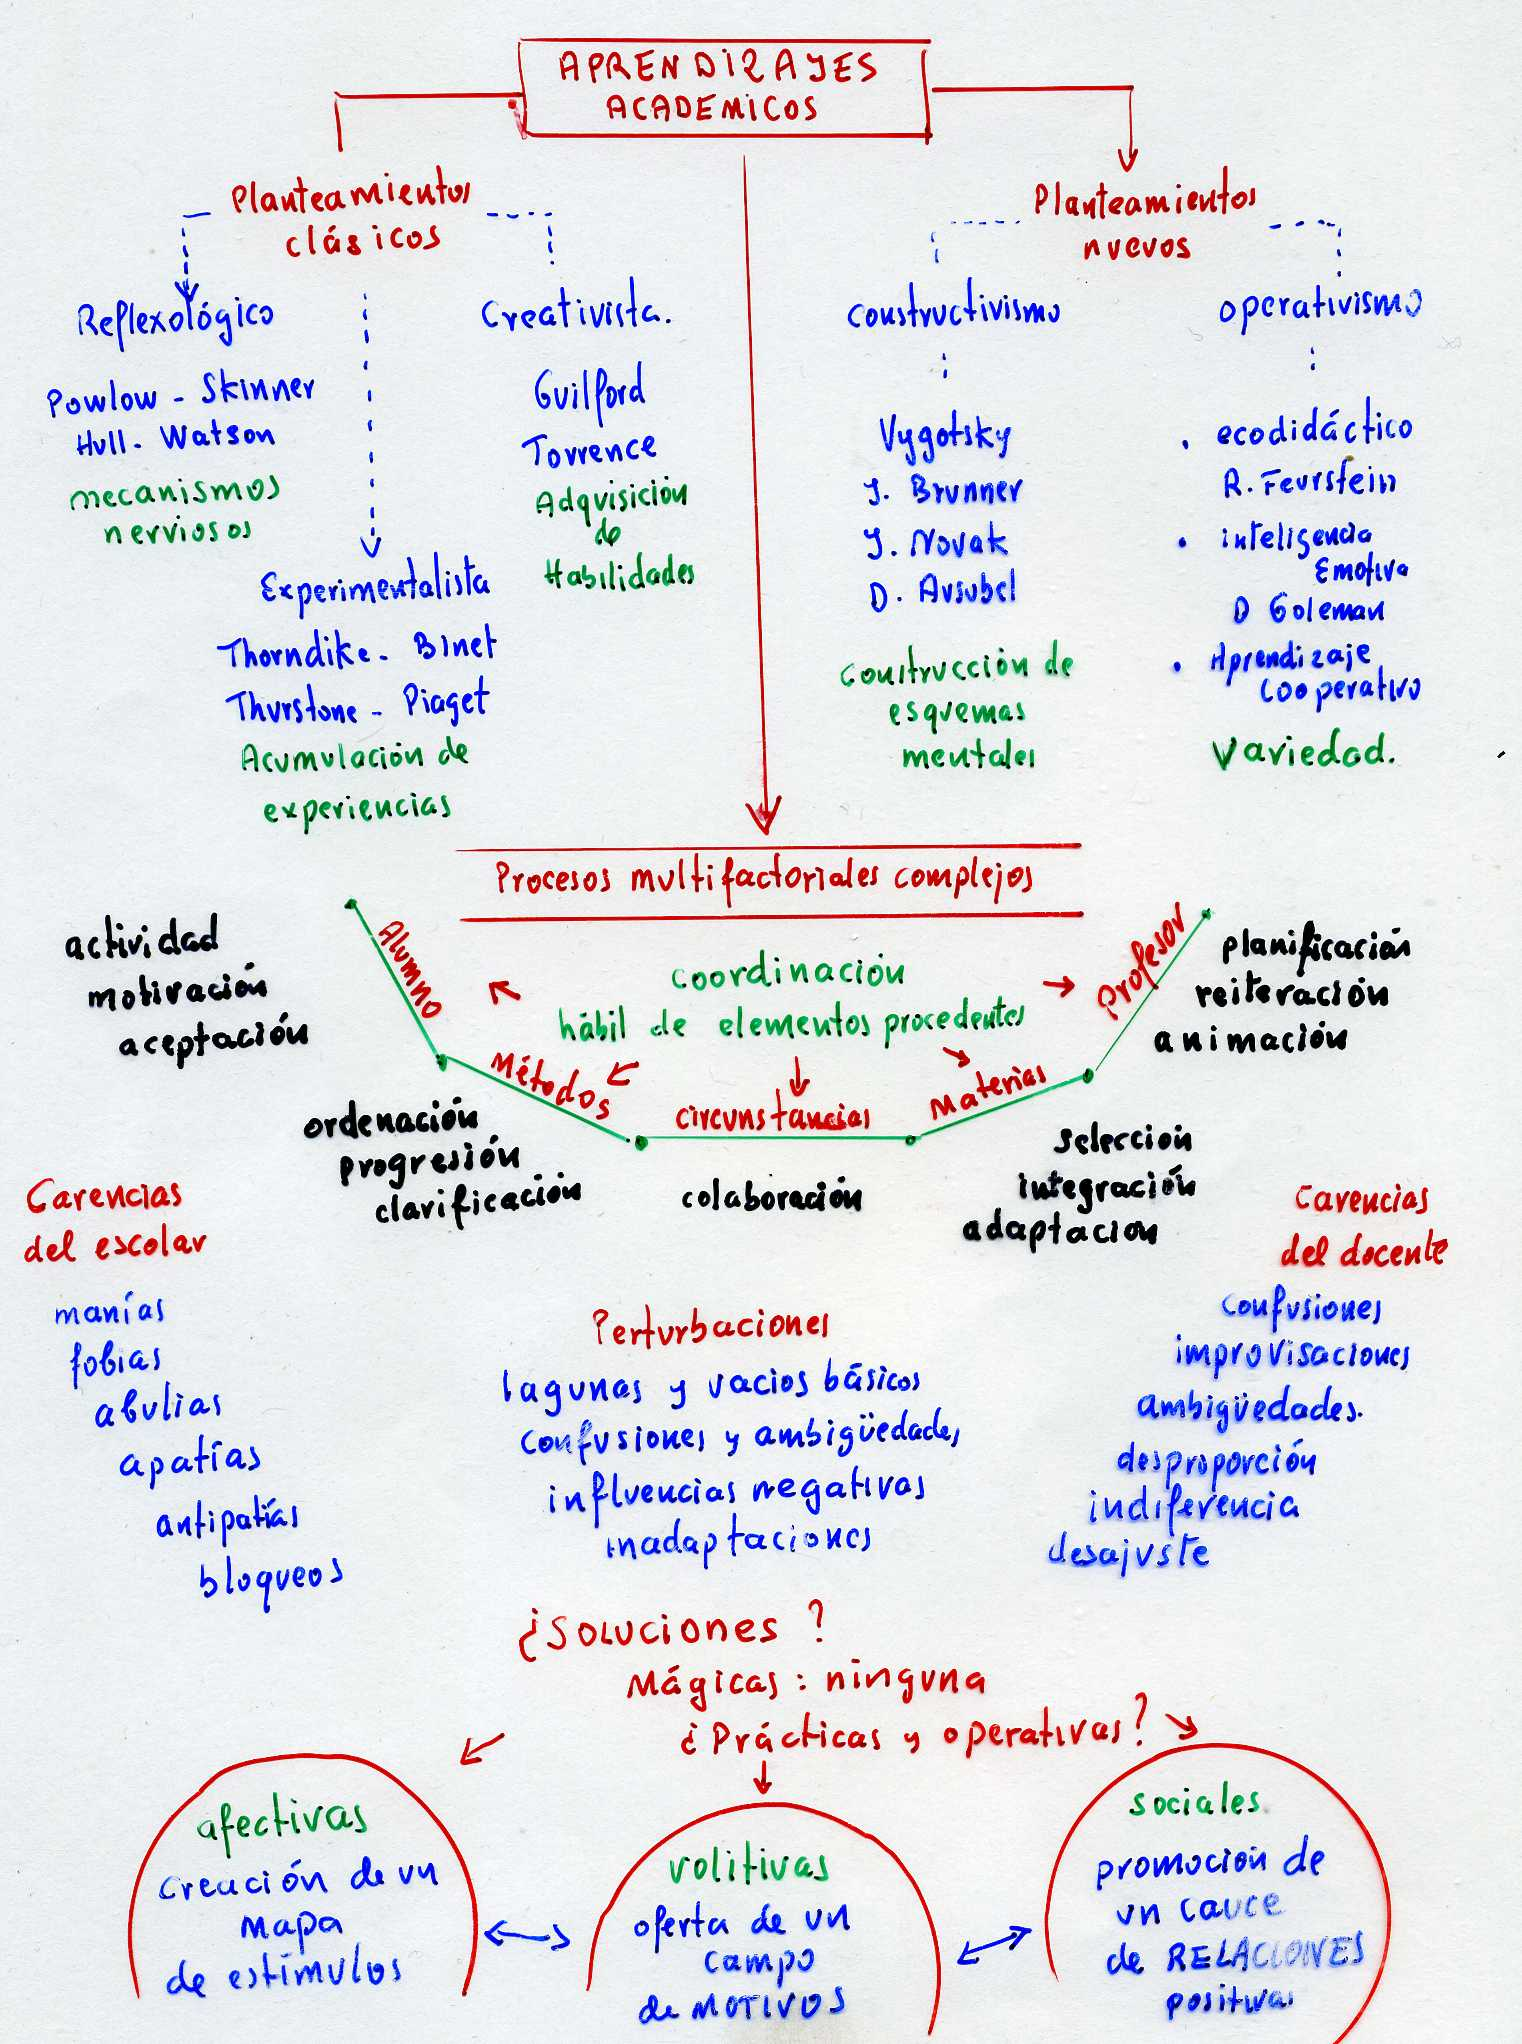 APRENDIZAJES
ACADEMICOS
Planteamientos
clásicos
Reflexológico
Powlow - Skinner
Hull - Watson
mecanismos
nerviosos
Experimentalista
Thorndike - Binet
Thurstone - Piaget
Acumulación de
experiencias
Creativista.
Guilford
Torrence
Adquisición
de
Habilidades
Planteamientos
nuevos
Constructivismo
Vygotsky
J. Brunner
J. Novak
D. Ausubel
Construcción de
esquemas
mentales
operativismo
. ecodidáctico
R. Feurstein
. inteligencia
Emotiva
D Goleman
. Aprendizaje
cooperativo
Variedad.
Procesos multifactoriales complejos
coordinación
hábil de elementos procedentes
Alumno
actividad
motivación
aceptación
Métodos
ordenación
progresión
clarificación
circunstancias
colaboración
Materias
selección
integración
adaptacion
Profesor
planificación
reiteración
animación
Carencias
del escolar
manías
fobias
abulias
apatías
antipatías
bloqueos
Perturbaciones
lagunas y vacios básicos
confusiones y ambigüedades
influencias negativas
inadaptaciones
Carencias
del docente
confusiones
improvisaciones
ambigüedades.
desproporción
indiferencia
desajuste
¿Soluciones?
Mágicas: ninguna
¿Prácticas y operativas?
afectivas
creación de un
mapa
de estímulos
volitivas
oferta de un
campo
de MOTIVOS
sociales.
promoción de
un cauce
de RELACIONES
positivas